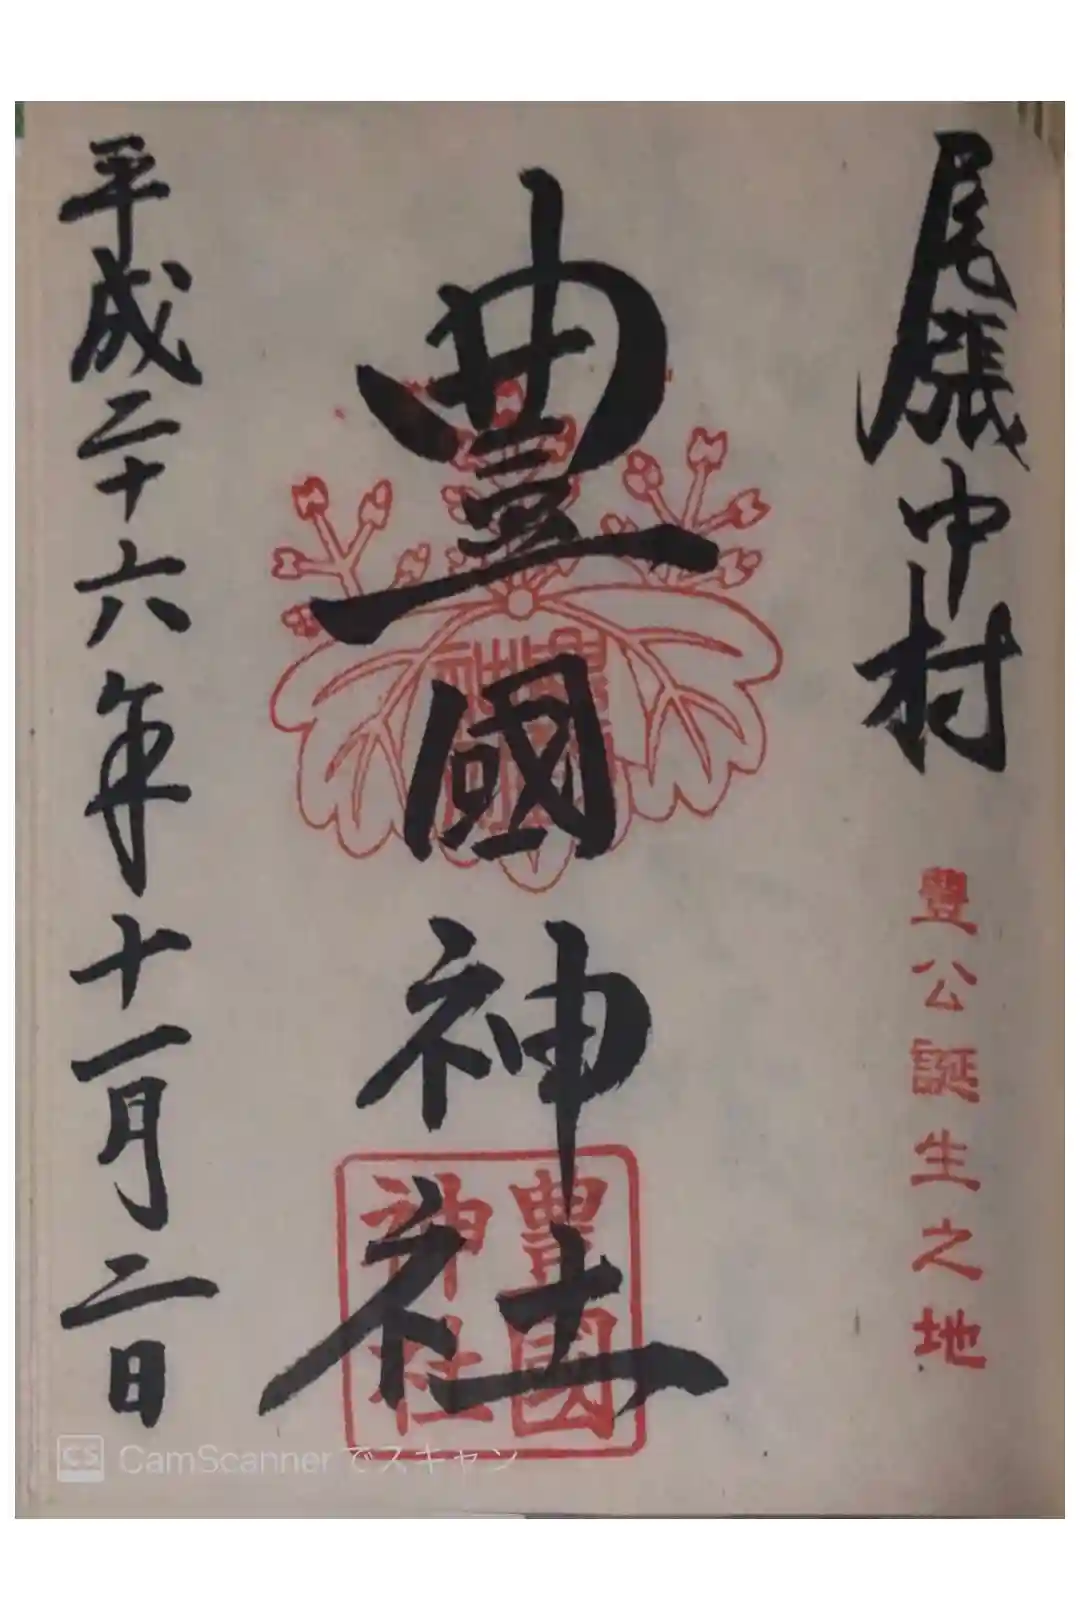 尾張中村
豐公誕生之地
豊國神社
豊國
神社
平成二十六年十一月二日
CS CamScanner でスキャン